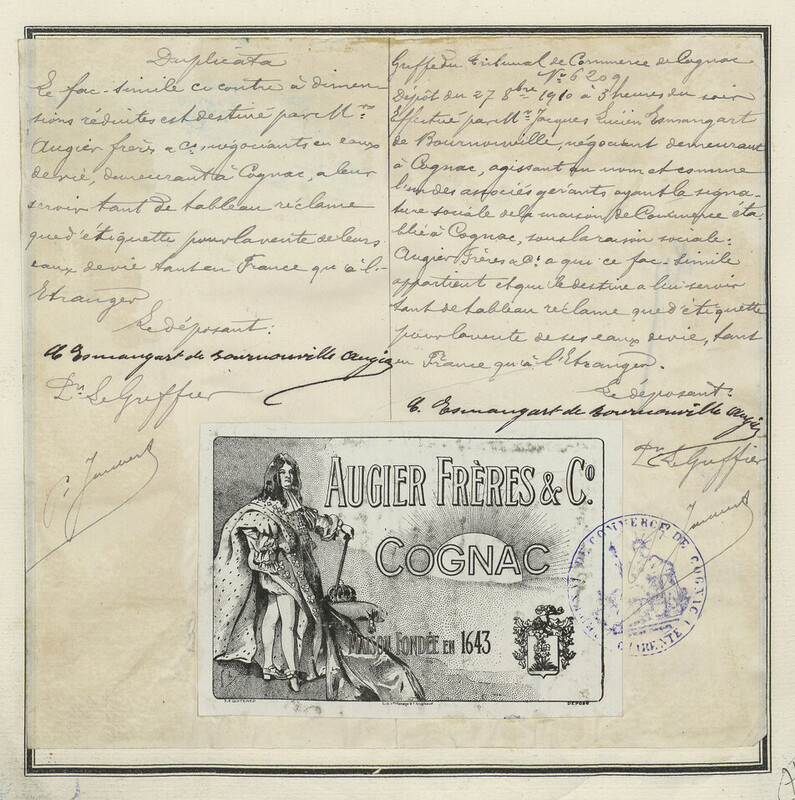 Duplicata
Le fac-simile ci contre à dimen-
sions réduites est destiné par Mrs
Augier frères & Cie, négociants en eaux
de vie, demeurant à Cognac, a leur
servir tant de tableau réclame
que d'étiquette pour la vente de leurs
eaux de vie tant en France qu'à l'-
Etranger
Le déposant:
A Esmangart de Bournonville Augier
Le Greffier
Greffe du Tribunal de Commerce de Cognac
No 6209
Dépôt du 27 8bre 1910 à 3 heures du soir
Effectué par Mr Jacques Lucien Esmangart
de Bournonville, négociant demeurant
à Cognac, agissant au nom et comme
l'un des associés gérants ayant la signa-
ture sociale de la maison de Commerce éta-
blie à Cognac, sous la raison sociale:
Augier Frères & Cie a qui ce fac-simile
appartient et qui le destine a lui servir
tant de tableau réclame que d'étiquette
pour la vente de ses eaux de vie, tant
en France qu'à l'Etranger.
Le déposant:
A. Esmangart de Bournonville Augier
Le Greffier
AUGIER FRÈRES & Co.
COGNAC
MAISON FONDÉE EN 1643
DÉPOSÉ
DE COMMERCE DE COGNAC
CHARENTE